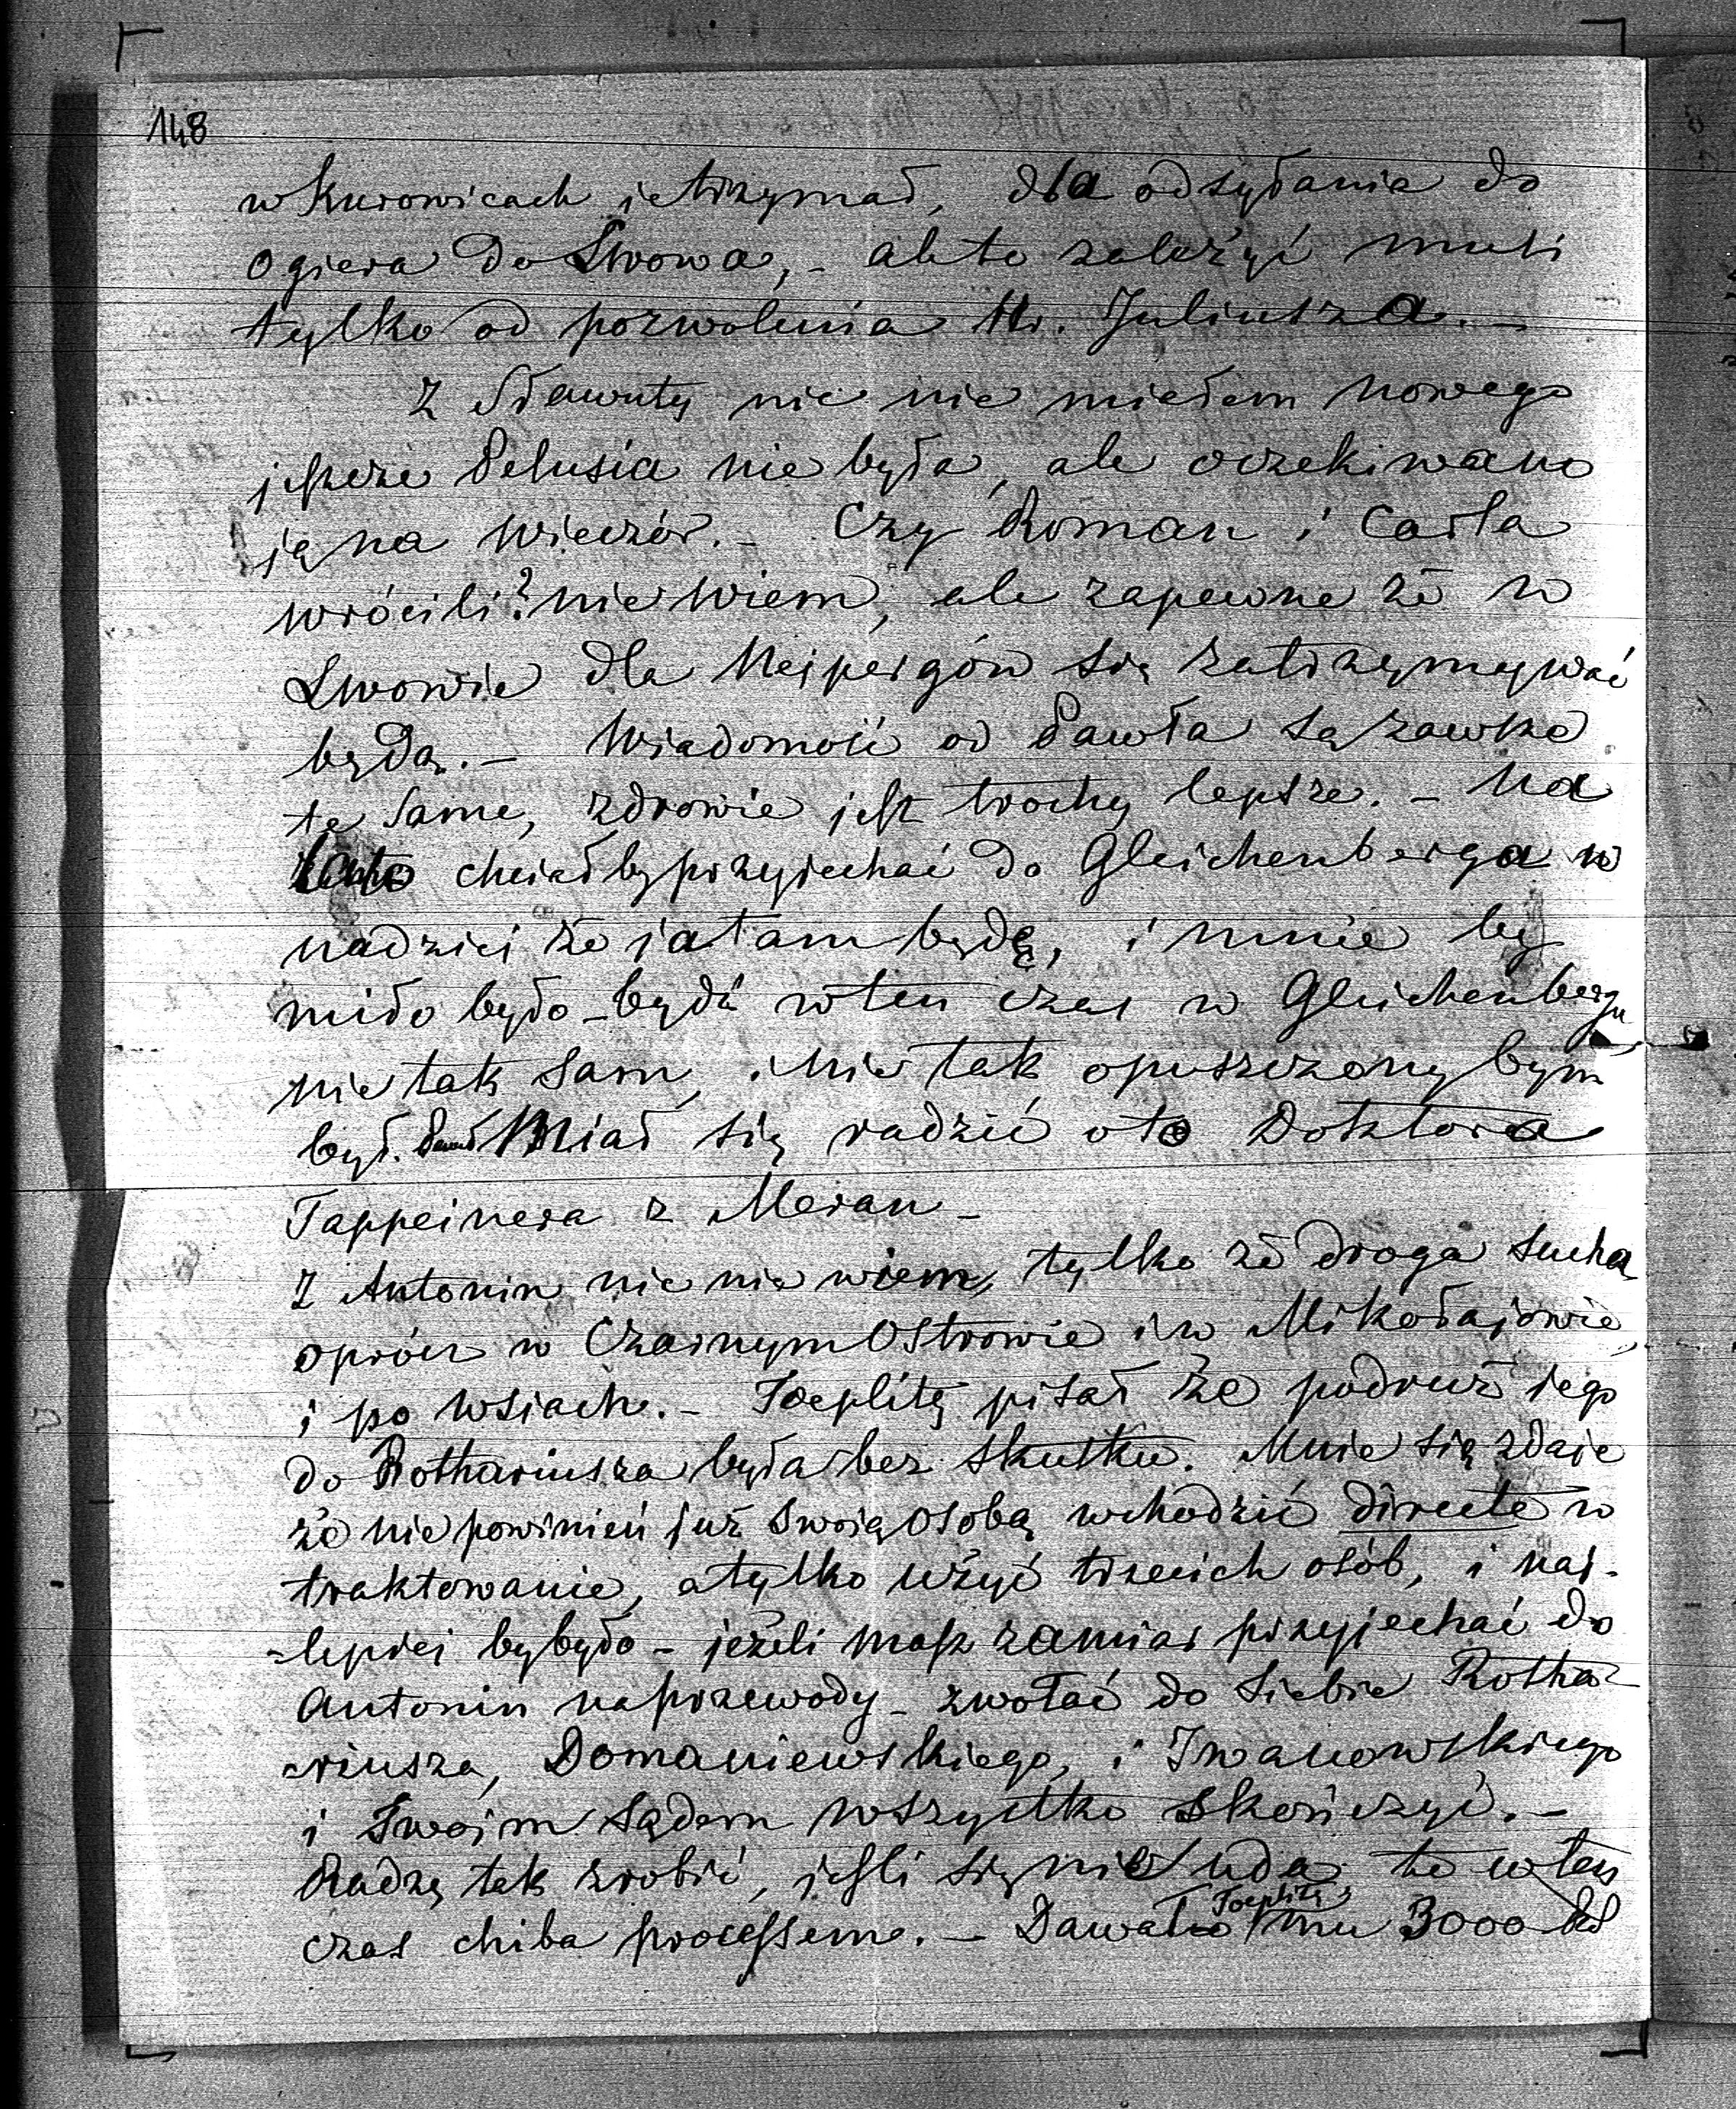 148
w Kurowicach je trzymał, dla odsyłania do
Ogiera do Lwowa, - ale to zależyć musi
tylko od pozwolenia Hr. Juliusza. -
Z Sławuty nic nie miałem nowego
jeszcze Pelusia nie była, ale oczekiwano
ją na wieczór. - Czy Roman i Carla
wrócili? nie wiem, ale zapewne że w
Lwowie dla Neipergów się zatrzymywać
będą. - Wiadomość od Pawła są zawsze
te same, zdrowie jest trochę lepsze. - Na
lato chciałby przyjechać do Gleichenberga w
nadziei że ja tam będę, i mnie by
miło było - bądź w ten czas w Gleichenbergu
nie tak sam, i nie tak opuszczony bym
był. Paweł Miał się radzić o to Doktora
Tappeinera z Meran -
Z Antonin nic nie wiem, tylko że droga sucha
oprócz w Czarnym Ostrowie i w Mikołajowie,
i po wsiach. - Toeplitz pisał że podruż jego
do Rothariusza była bez skutku. Mnie się zdaje
że nie powinień już swoją osobą wchodzić directe w
traktowanie, a tylko użyć trzecich osób, i naj-
-lepiej by było - jeżeli masz zamiar przyjechać do
Antonin na przewody - zwołać do siebie Rotha-
-riusza, Domaniewskiego, i Iwanowskiego
i Twoim sądem wszystko skończyć. -
Radzę tak zrobić, jeśli się nie uda to w ten
czas chiba processem. - Dawał Toeplitz mu 3000